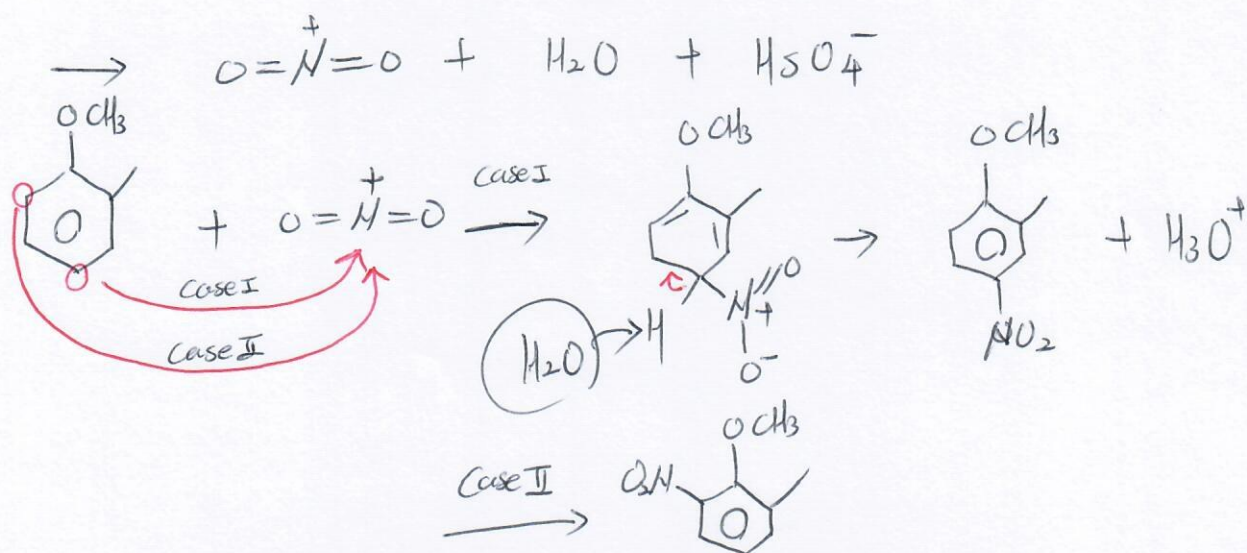 → O=N⁺=O + H₂O + HSO₄⁻
OCH₃
+ O=N⁺=O case I →
case I
case II
OCH₃
N⁺
O
O⁻
H₂O → H
→
OCH₃
NO₂
+ H₃O⁺
case II →
OCH₃
O₂N